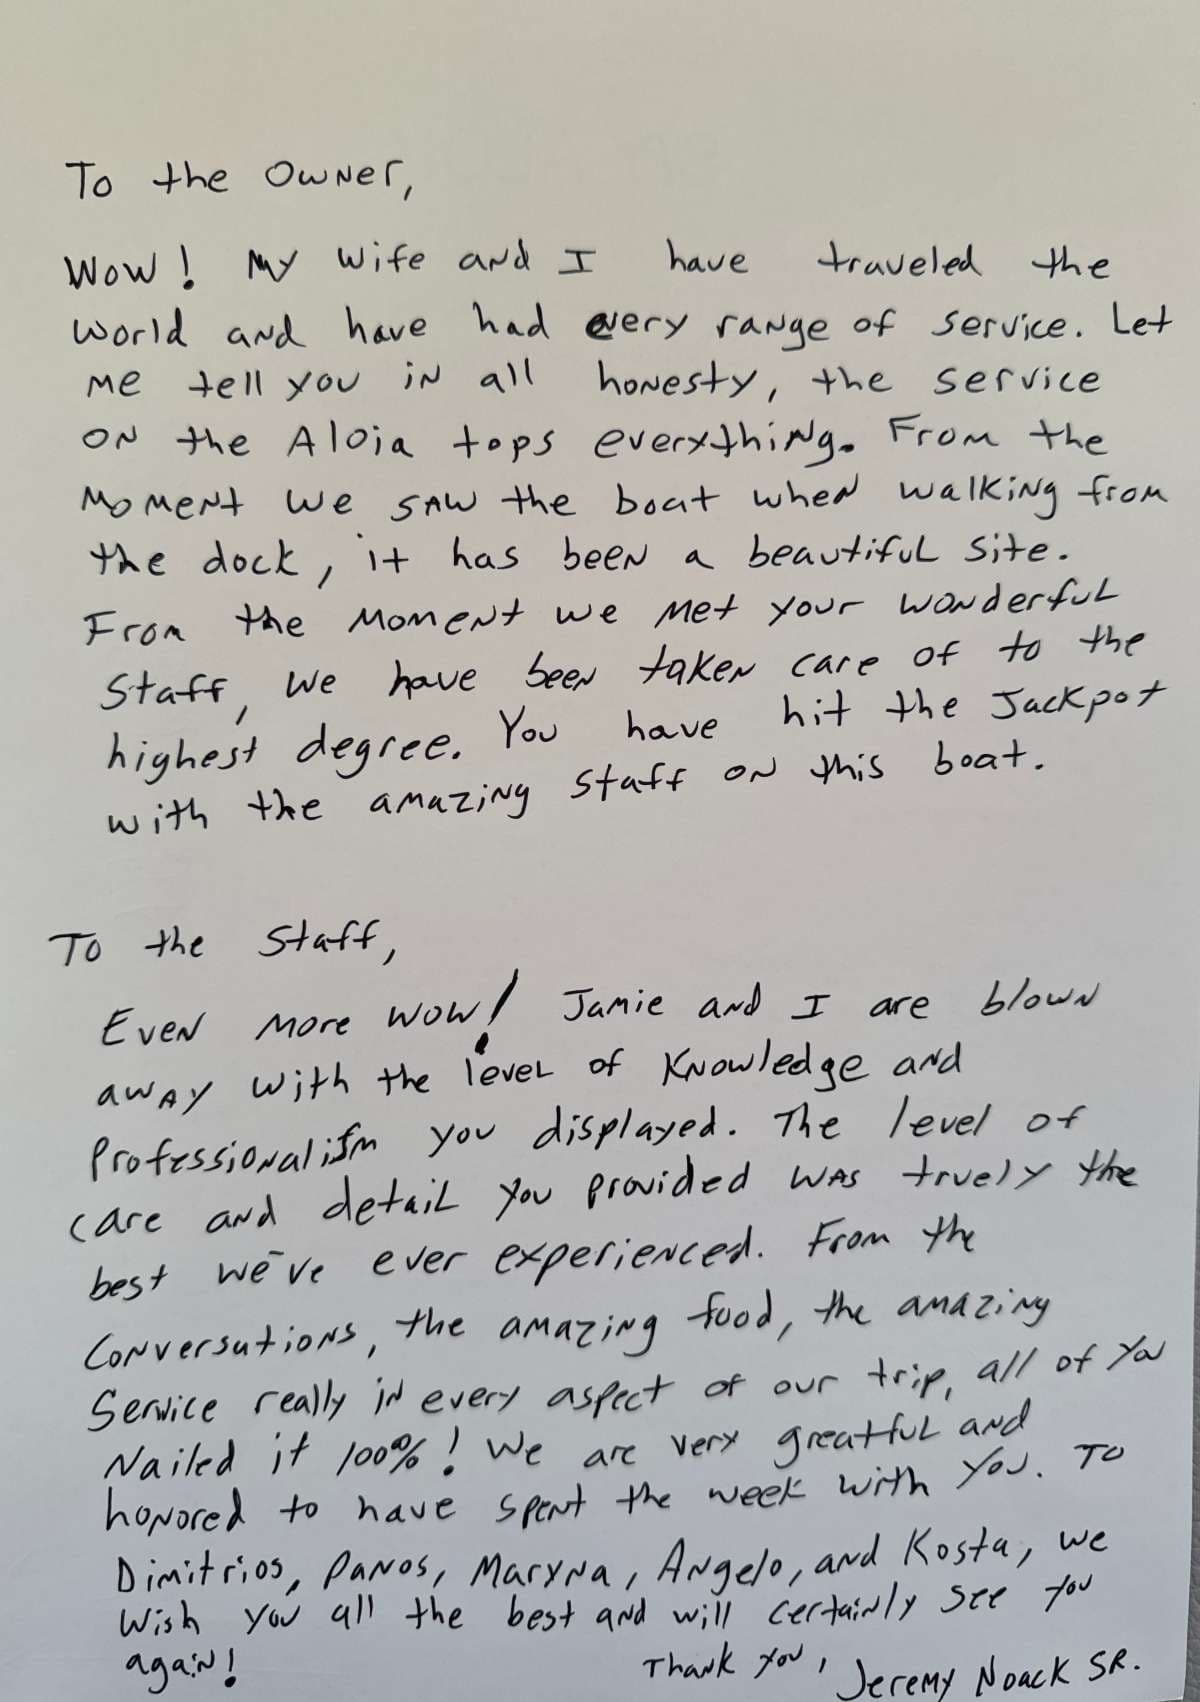 To the Owner,
Wow! My wife and I have traveled the
world and have had every range of service. Let
me tell you in all honesty, the service
on the Aloia tops everything. From the
moment we saw the boat when walking from
the dock, it has been a beautiful site.
From the moment we met your wonderful
staff, we have been taken care of to the
highest degree. You have hit the Jackpot
with the amazing staff on this boat.
To the Staff,
Even more wow! Jamie and I are blown
away with the level of knowledge and
professionalism you displayed. The level of
care and detail you provided was truely the
best we've ever experienced. From the
conversations, the amazing food, the amazing
service really in every aspect of our trip, all of you
nailed it 100%! We are very greatful and
honored to have spent the week with you. To
Dimitrios, Panos, Maryna, Angelo, and Kosta, we
wish you all the best and will certainly see you
again!
Thank you, Jeremy Noack SR.